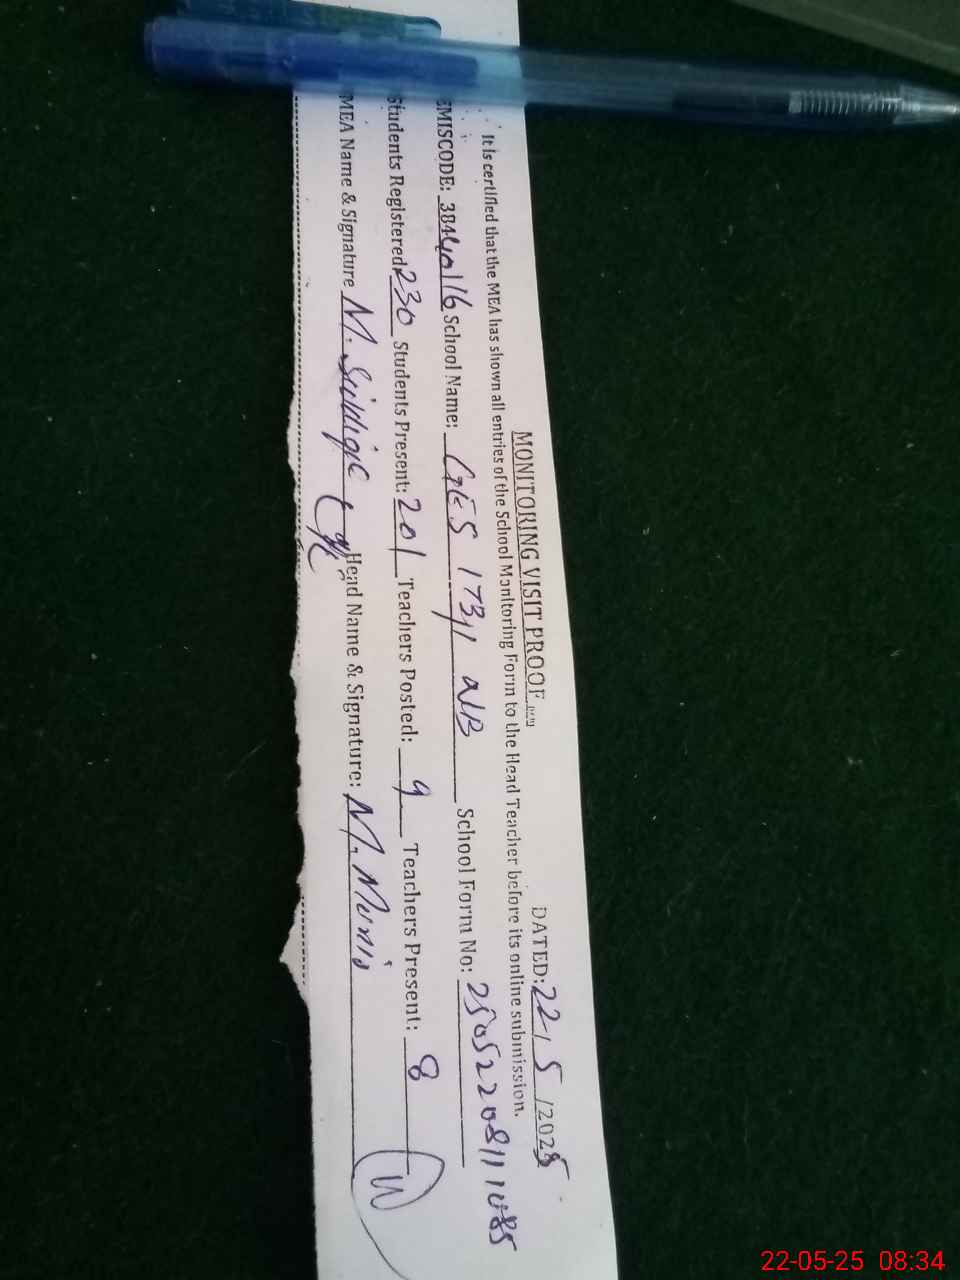 MONITORING VISIT PROOF
DATED: 22/5/2025
It is certified that the MEA has shown all entries of the School Monitoring Form to the Head Teacher before its online submission.
EMISCODE: 38440116 School Name: GES 173/1 NB School Form No:
Students Registered 230 Students Present: 201 Teachers Posted: 9 Teachers Present: 8
MEA Name & Signature M. Siddique Head Name & Signature: M. Munir
22-05-25 08:34